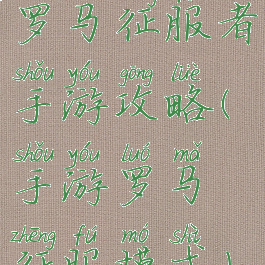 罗马征服者
shǒu yóu gōng lüè
手游攻略(
shǒu yóu luó mǎ
手游罗马
zhēng fú mó shì
征服模式)